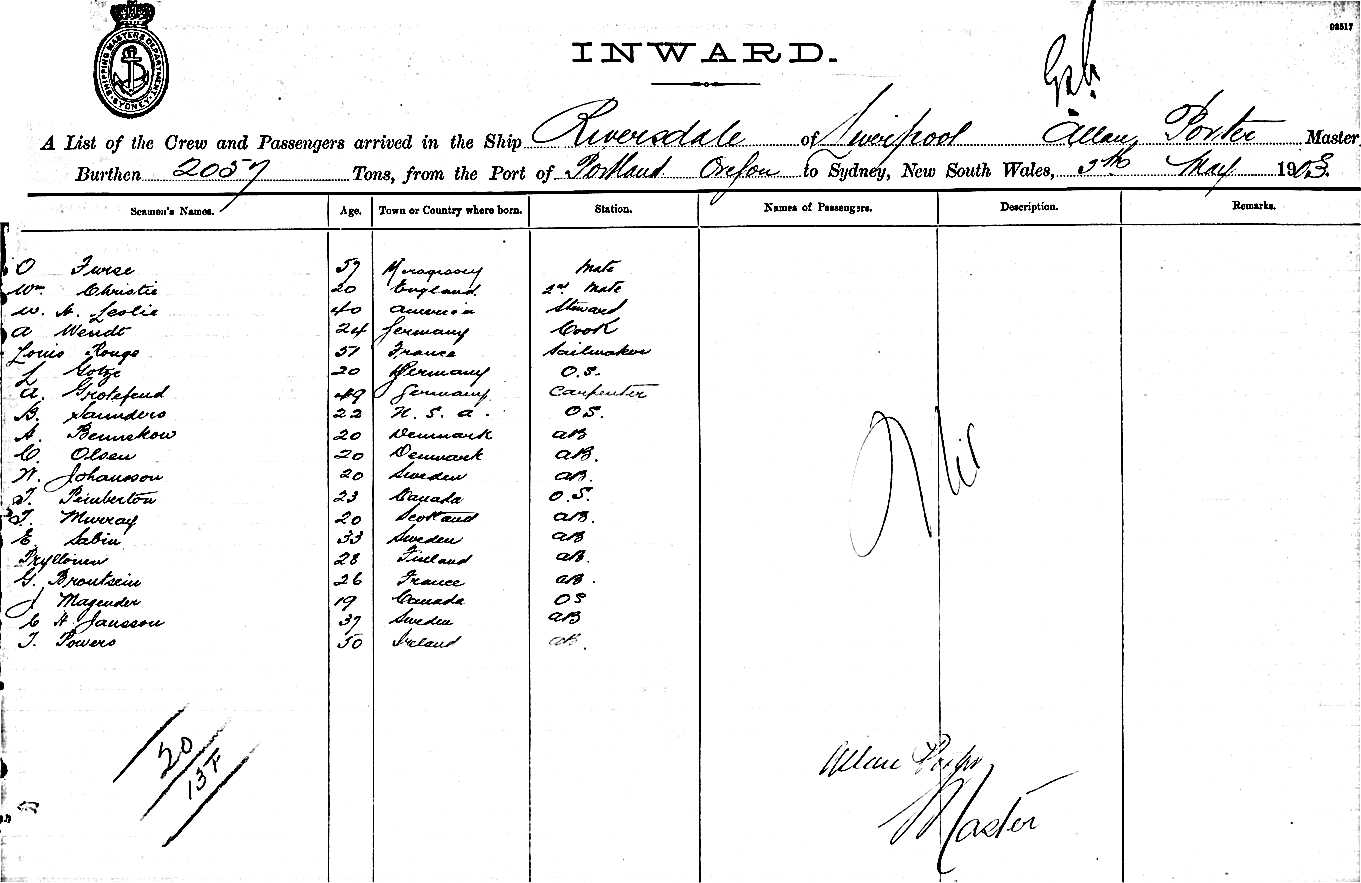 SHIPPING MASTERS DEPARTMENT SYDNEY
02517
INWARD.
A List of the Crew and Passengers arrived in the Ship Riversdale of Liverpool Allan Porter Master
Burthen 2057 Tons, from the Port of Portland Oregon to Sydney, New South Wales, 5th May 1903.
Seamen's Names. Age. Town or Country where born. Station. Names of Passengers. Description. Remarks.
O Furse 57 Mate
Wm Christie 20 England 2nd Mate
W. H. Leslie 40 America Steward
A Wendt 24 Germany Cook
Louis Rouge 51 France Sailmaker
L Gotze 20 Germany O.S.
A. Grotefend 49 Germany Carpenter
B. Saunders 22 U.S.A. OS.
A. Bennekow 20 Denmark AB
C. Olsen 20 Denmark AB.
W. Johansson 20 Sweden AB.
T. Pemberton 23 Canada O.S.
T. Murray 20 Scotland AB.
E. Sabin 33 Sweden AB
28 Finland AB.
G. Brontsein 26 France AB.
J Magender 19 Canada OS
C A Jansson 37 Sweden AB
T. Powers 50 Ireland AB.
Nil
20
13 F
Allan Porter
Master